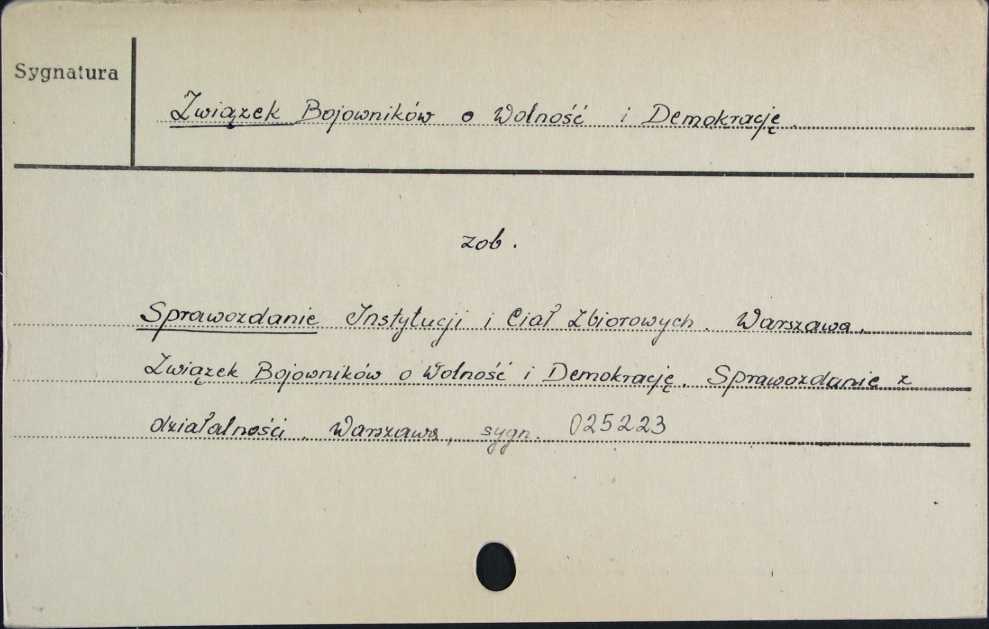 Sygnatura
Związek Bojowników o Wolność i Demokrację.
zob.
Sprawozdanie Instytucji i Ciał Zbiorowych. Warszawa.
Związek Bojowników o Wolność i Demokrację. Sprawozdanie z
działalności. Warszawa, sygn. 025223